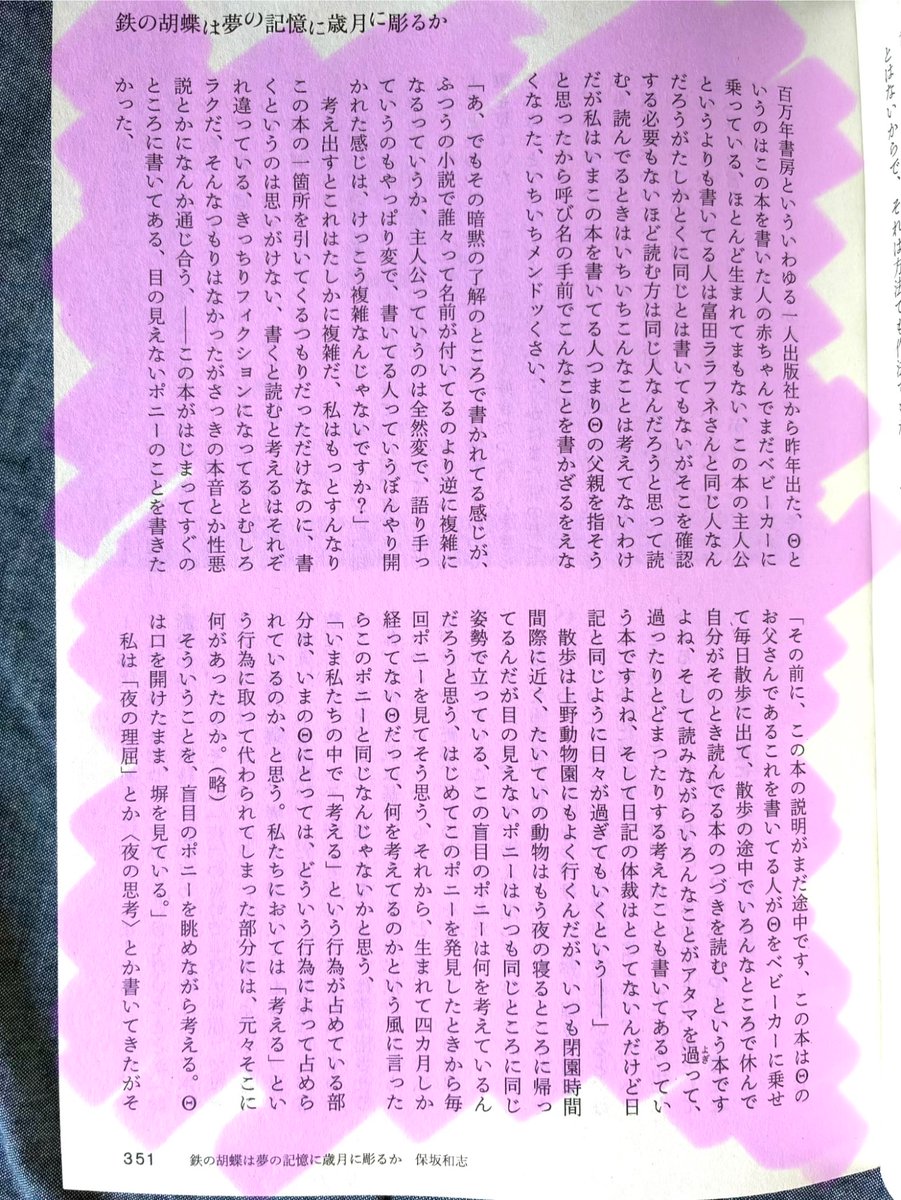 鉄の胡蝶は夢の記憶に歳月に彫るか
百万年書房といういわゆる一人出版社から昨年出た、Θと
いうのはこの本を書いた人の赤ちゃんでまだベビーカーに
乗っている、ほとんど生まれてまもない、この本の主人公
というよりも書いてる人は富田ララフネさんと同じ人なん
だろうがたしかとくに同じとは書いてもないがそこを確認
する必要もないほど読む方は同じ人なんだろうと思って読
む、読んでるときはいちいちこんなことは考えてないわけ
だが私はいまこの本を書いてる人つまりΘの父親を指そう
と思ったから呼び名の手前でこんなことを書かざるをえな
くなった、いちいちメンドッくさい、
「あ、でもその暗黙の了解のところで書かれてる感じが、
ふつうの小説で誰々って名前が付いてるのより逆に複雑に
なるっていうか、主人公っていうのは全然変で、語り手っ
ていうのもやっぱり変で、書いてる人っていうぼんやり開
かれた感じは、けっこう複雑なんじゃないですか？」
考え出すとこれはたしかに複雑だ、私はもっとすんなり
この本の一箇所を引いてくるつもりだっただけなのに、書
くというのは思いがけない、書くと読むと考えるはそれぞ
れ違っている、きっちりフィクションになってるとむしろ
ラクだ、そんなつもりはなかったがさっきの本音とか性悪
説とかになんか通じ合う、――この本がはじまってすぐの
ところに書いてある、目の見えないポニーのことを書きた
かった、
「その前に、この本の説明がまだ途中です、この本はΘの
お父さんであるこれを書いてる人がΘをベビーカーに乗せ
て毎日散歩に出て、散歩の途中でいろんなところで休んで
自分がそのとき読んでる本のつづきを読む、という本です
よね、そして読みながらいろんなことがアタマを過って、
過ったりとどまったりする考えたことも書いてあるってい
う本ですよね、そして日記の体裁はとってないんだけど日
記と同じように日々が過ぎてもいくという――」
散歩は上野動物園にもよく行くんだが、いつも閉園時間
間際に近く、たいていの動物はもう夜の寝るところに帰っ
てるんだが目の見えないポニーはいつも同じところに同じ
姿勢で立っている、この盲目のポニーは何を考えているん
だろうと思う、はじめてこのポニーを発見したときから毎
回ポニーを見てそう思う、それから、生まれて四カ月しか
経ってないΘだって、何を考えてるのかという風に言った
らこのポニーと同じなんじゃないかと思う、
「いま私たちの中で「考える」という行為が占めている部
分は、いまのΘにとっては、どういう行為によって占めら
れているのか、と思う。私たちにおいては「考える」とい
う行為に取って代わられてしまった部分には、元々そこに
何があったのか。（略）
そういうことを、盲目のポニーを眺めながら考える。Θ
は口を開けたまま、塀を見ている。」
私は「夜の理屈」とか〈夜の思考〉とか書いてきたがそ
351 鉄の胡蝶は夢の記憶に歳月に彫るか 保坂和志